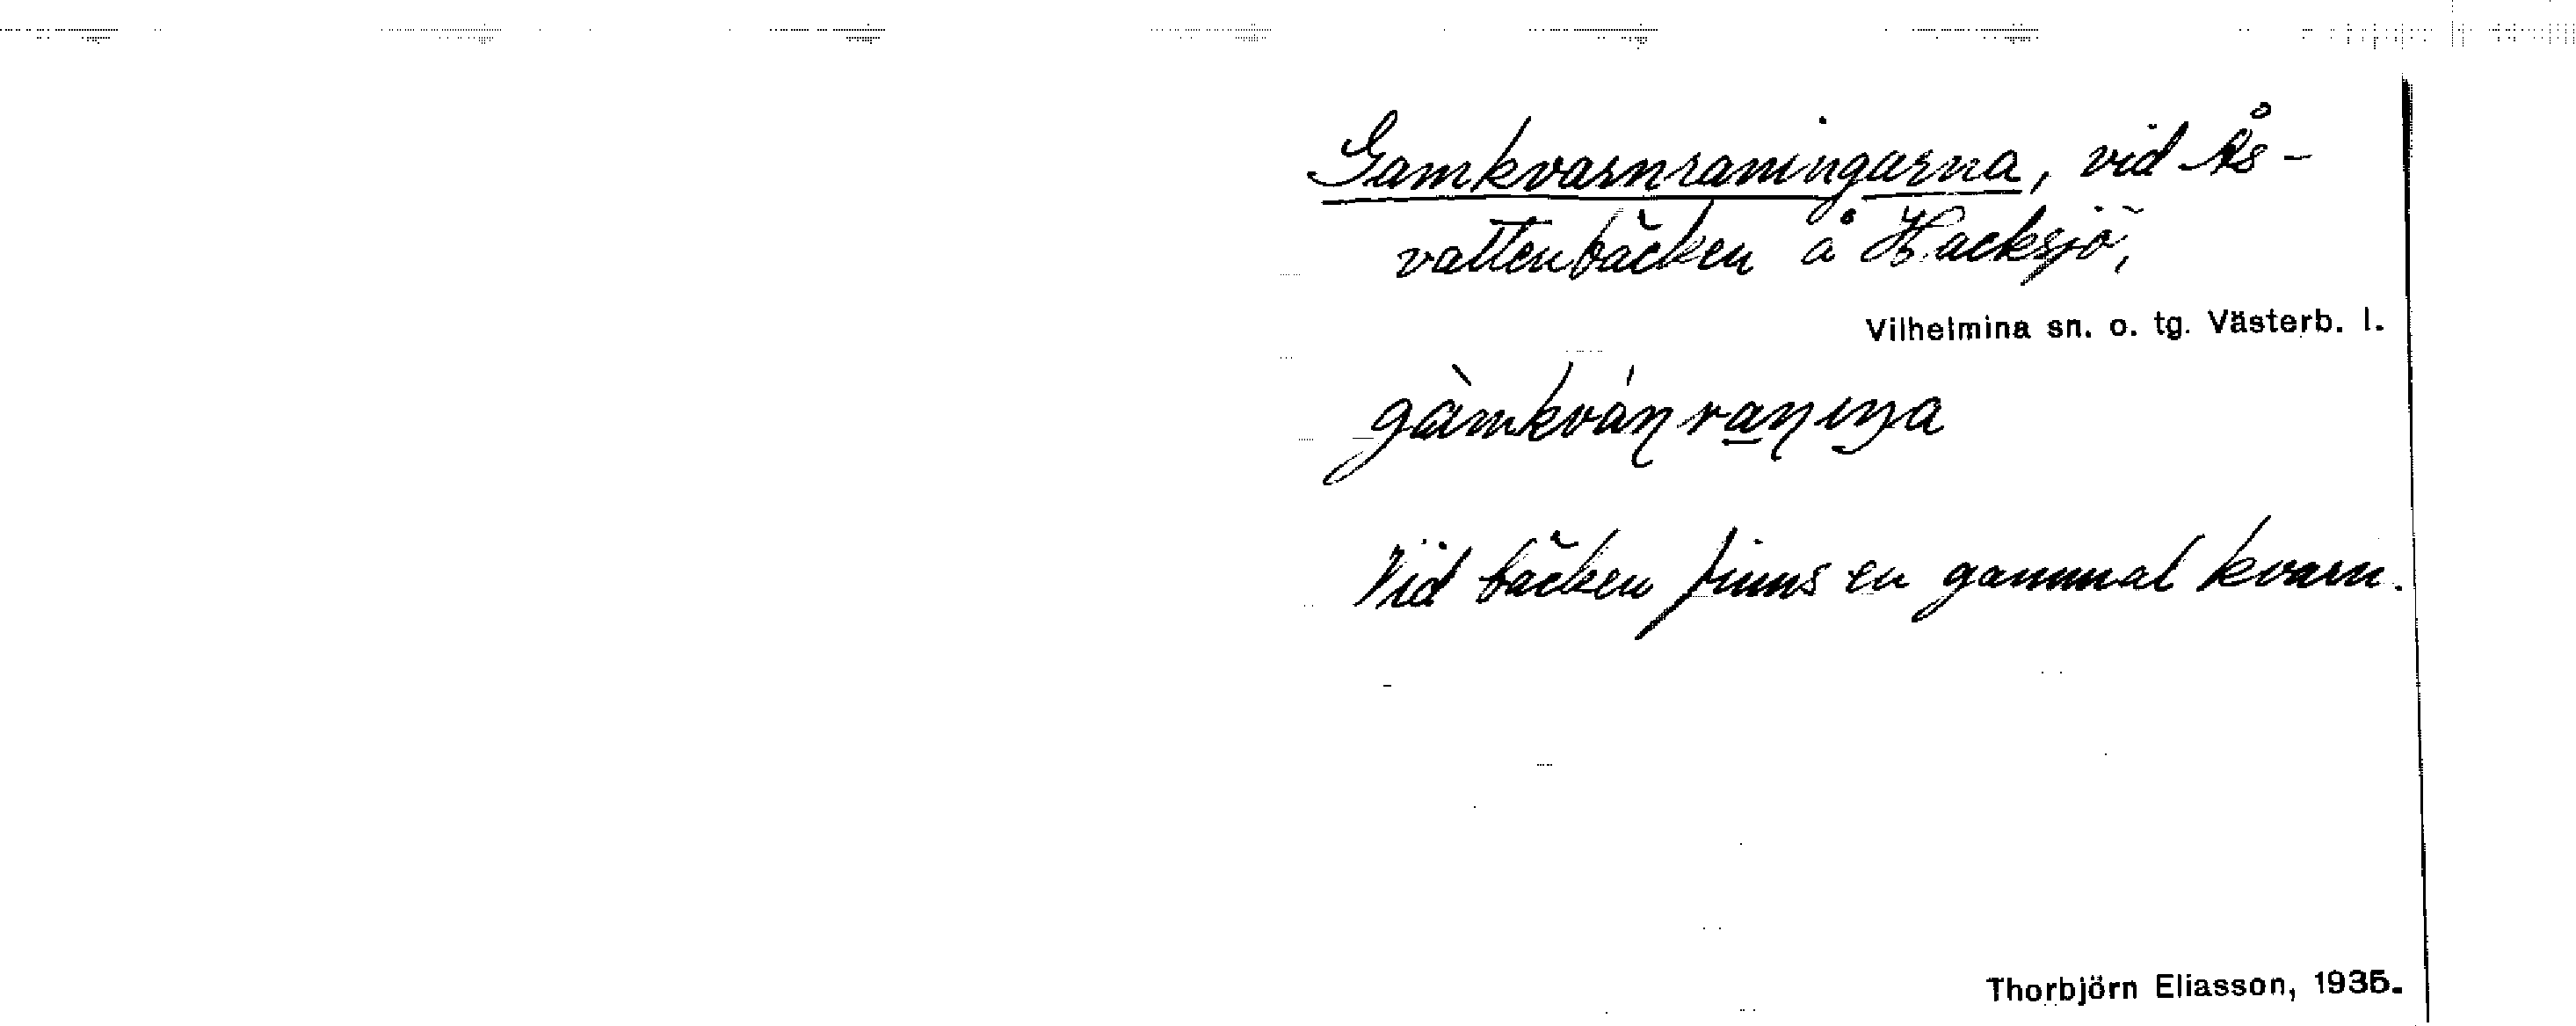 Gamkvarnraningarna, vid Ås-
vattenbäcken å Hacksjö,
Vilhelmina sn. o. tg. Västerb. l.
gàmkván̩raṉiŋa
Vid bäcken finns en gammal kvarn.
Thorbjörn Eliasson, 1935.